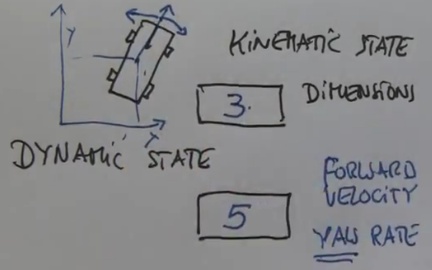 Y
X
KINEMATIC STATE
3.
DIMENSIONS
DYNAMIC STATE
5
FORWARD
VELOCITY
YAW RATE